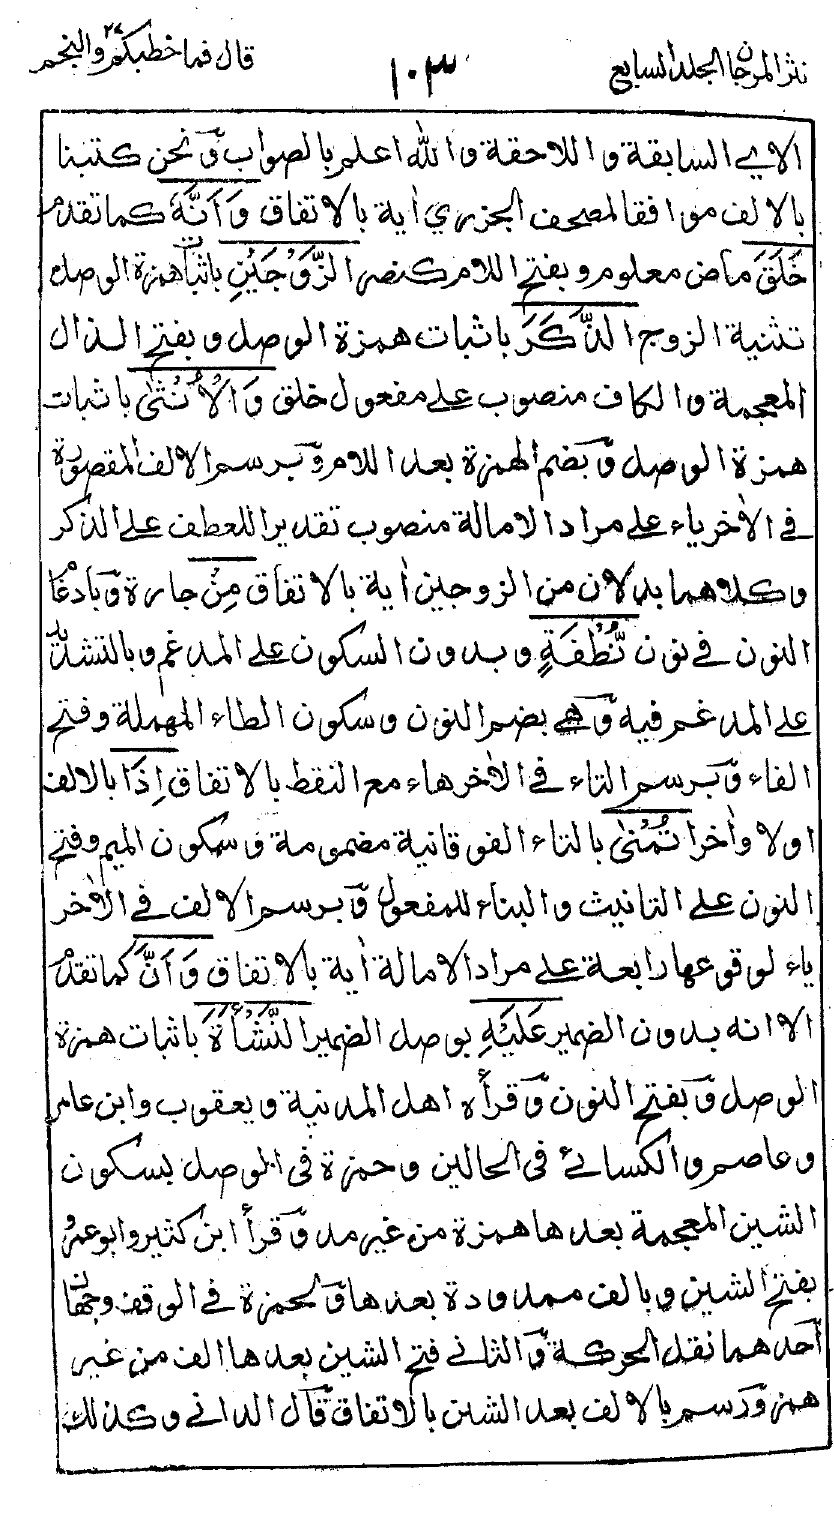 نثر المرجان المجلد السابع
١٠٣
قال فما خطبكم ٢٧ والنجم
الاي السابقة و اللاحقة و الله اعلم بالصواب وّ نحن كتبنا
بالالف موافقا لمصحف الجزري اٰية بالاتفاق وَاَنَّهٗ كما تقدم
خَلَقَ ماض معلوم و بفتح اللام كنصر الزَّوْجَيْنِ باثبات همزة الوصل
تثنية الزوج الذَّكَرَ باثبات همزة الوصل و بفتح الذال
المعجمة و الكاف منصوب على مفعول خلق وَالْاُنْثٰى باثبات
همزة الوصل وّ بضم الهمزة بعد اللام وّ برسم الالف المقصورة
في الاٰخر ياء على مراد الامالة منصوب تقديرا للعطف على الذكر
و كلاهما بدلان من الزوجين اٰية بالاتفاق مِنْ جارة وّ بادغام
النون في نون نُّطْفَةٍ و بدون السكون على المدغم و بالتشديد
على المدغم فيه وّ هي بضم النون و سكون الطاء المهملة و فتح
الفاء وّ برسم التاء في الاٰخر هاء مع النقط بالاتفاق اِذَا بالالف
اولا واٰخرا تُمْنٰى بالتاء الفوقانية مضمومة و سكون الميم و فتح
النون على التانيث و البناء للمفعول وّ برسم الالف في الاٰخر
ياء لوقوعها رابعة على مراد الامالة اٰية بالاتفاق وَاَنَّ كما تقدم
الا انه بدون الضمير عَلَيْهِ بوصل الضمير النَّشْأَةَ باثبات همزة
الوصل وّ بفتح النون وّ قرأه اهل المدينة و يعقوب و ابن عامر
و عاصم و الكسائي في الحالين و حمزة في الوصل بسكون
الشين المعجمة بعدها همزة من غير مد وّ قرأ ابن كثير و ابو عمرو
بفتح الشين و بالف ممدودة بعدها وّ لحمزة في الوقف وجهان
احدهما نقل الحركة وّ الثاني فتح الشين بعدها الف من غير
همز وّ رسم بالالف بعد الشين بالاتفاق قال الداني و كذلك